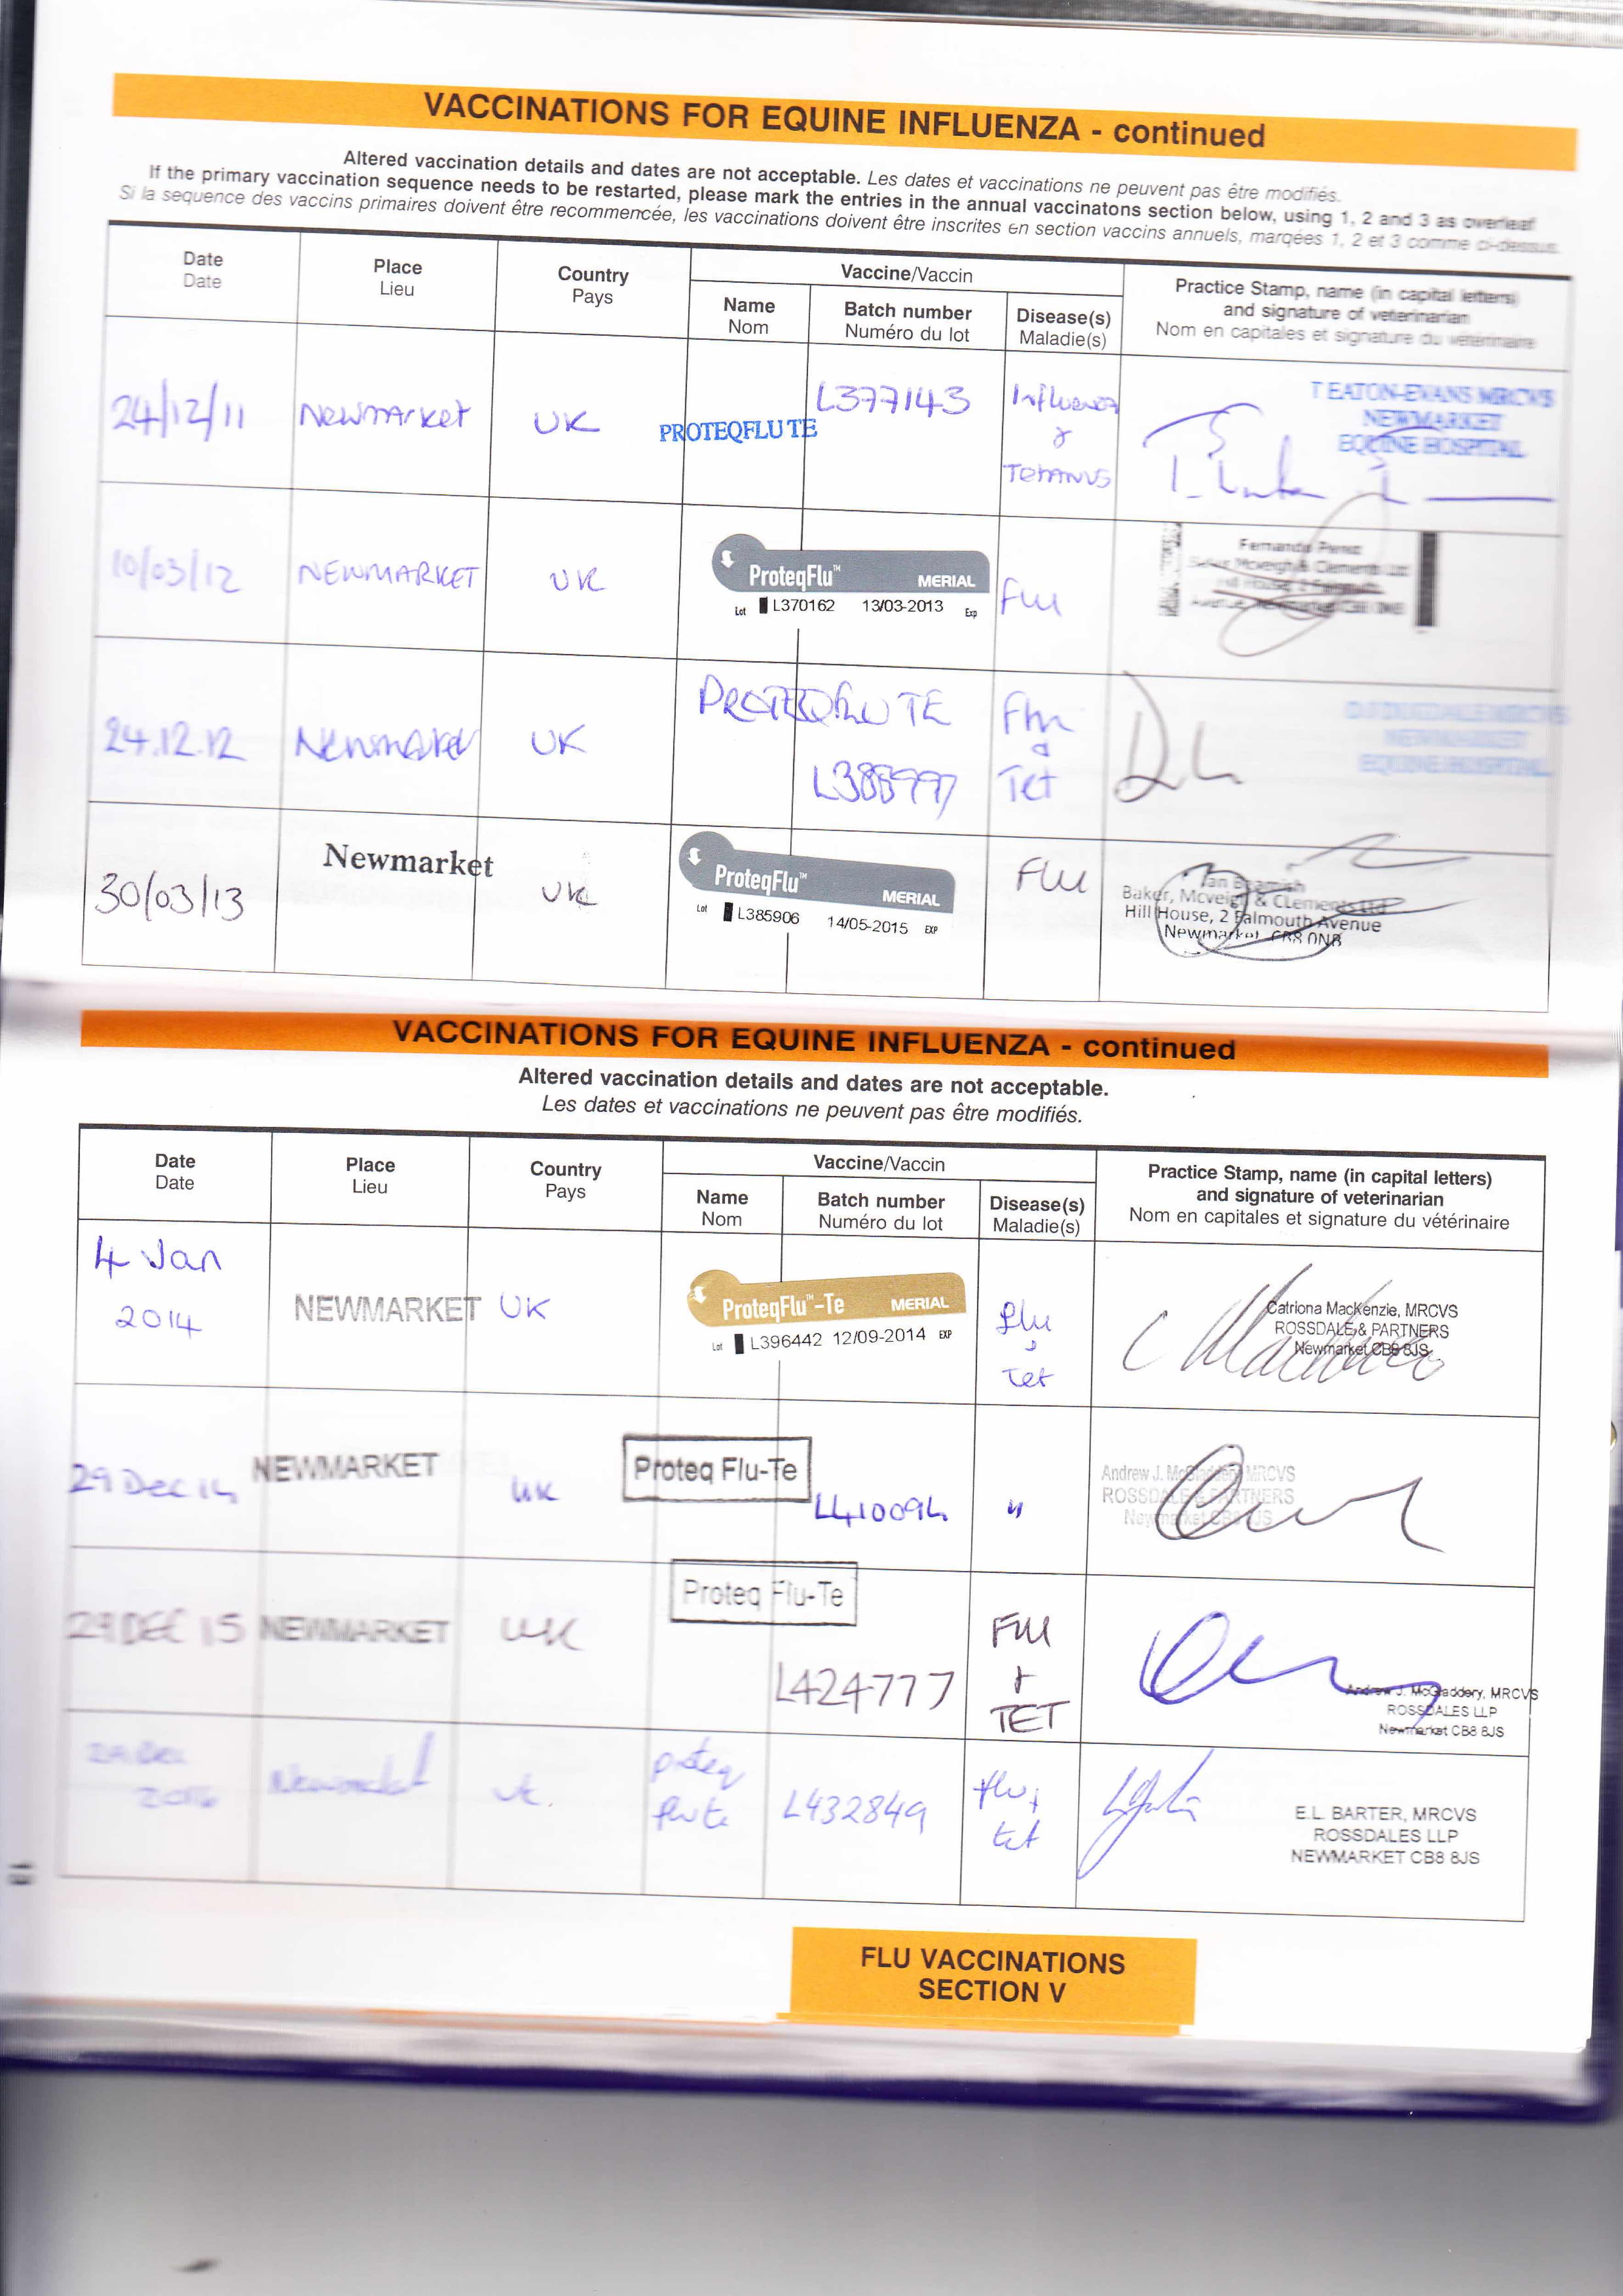 VACCINATIONS FOR EQUINE INFLUENZA - continued
Altered vaccination details and dates are not acceptable. Les dates et vaccinations ne peuvent pas être modifiés.
If the primary vaccination sequence needs to be restarted, please mark the entries in the annual vaccinatons section below, using 1, 2 and 3 as overleaf
Si la sequence des vaccins primaires doivent être recommencée, les vaccinations doivent être inscrites en section vaccins annuels, marqées 1, 2 et 3 comme ci-dessus.
Date Place Country Vaccine/Vaccin Practice Stamp, name (in capital letters)
Date Lieu Pays and signature of veterinarian
Name Batch number Disease(s) Nom en capitales et signature du vétérinaire
Nom Numéro du lot Maladie(s)
24/12/11 Newmarket UK PROTEQFLU TE L377143 Influenza
&
Tetanus
T EATON-EVANS MRCVS
NEWMARKET
EQUINE HOSPITAL
10/03/12 NEWMARKET UK ProteqFlu™ MERIAL Flu
Lot L370162 13/03-2013 Exp
Fernando Perez
24.12.12 Newmarket UK PROTEQFLU TE Flu
&
Tet
NEWMARKET
EQUINE HOSPITAL
30/03/13 Newmarket UK ProteqFlu™ MERIAL Flu
Lot L385906 14/05-2015 EXP
Baker, Mcveigh & Clements Ltd
Hill House, 2 Falmouth Avenue
Newmarket CB8 0NB
VACCINATIONS FOR EQUINE INFLUENZA - continued
Altered vaccination details and dates are not acceptable.
Les dates et vaccinations ne peuvent pas être modifiés.
Date Place Country Vaccine/Vaccin Practice Stamp, name (in capital letters)
Date Lieu Pays and signature of veterinarian
Name Batch number Disease(s) Nom en capitales et signature du vétérinaire
Nom Numéro du lot Maladie(s)
4 Jan
2014 NEWMARKET UK ProteqFlu™-Te MERIAL flu
Lot L396442 12/09-2014 EXP
Tet
Catriona MacKenzie, MRCVS
ROSSDALE & PARTNERS
Newmarket CB8 8JS
29 Dec 14 NEWMARKET UK Proteq Flu-Te L410094 "
Andrew J. McGladdery MRCVS
ROSSDALE & PARTNERS
Newmarket CB8 8JS
29 DEC 15 NEWMARKET UK Proteq Flu-Te L424777 FLU
+
TET
Andrew J. McGladdery, MRCVS
ROSSDALES LLP
Newmarket CB8 8JS
29 Dec
2016 Newmarket UK proteq
flu te L432849 flu +
tet
E.L. BARTER, MRCVS
ROSSDALES LLP
NEWMARKET CB8 8JS
FLU VACCINATIONS
SECTION V